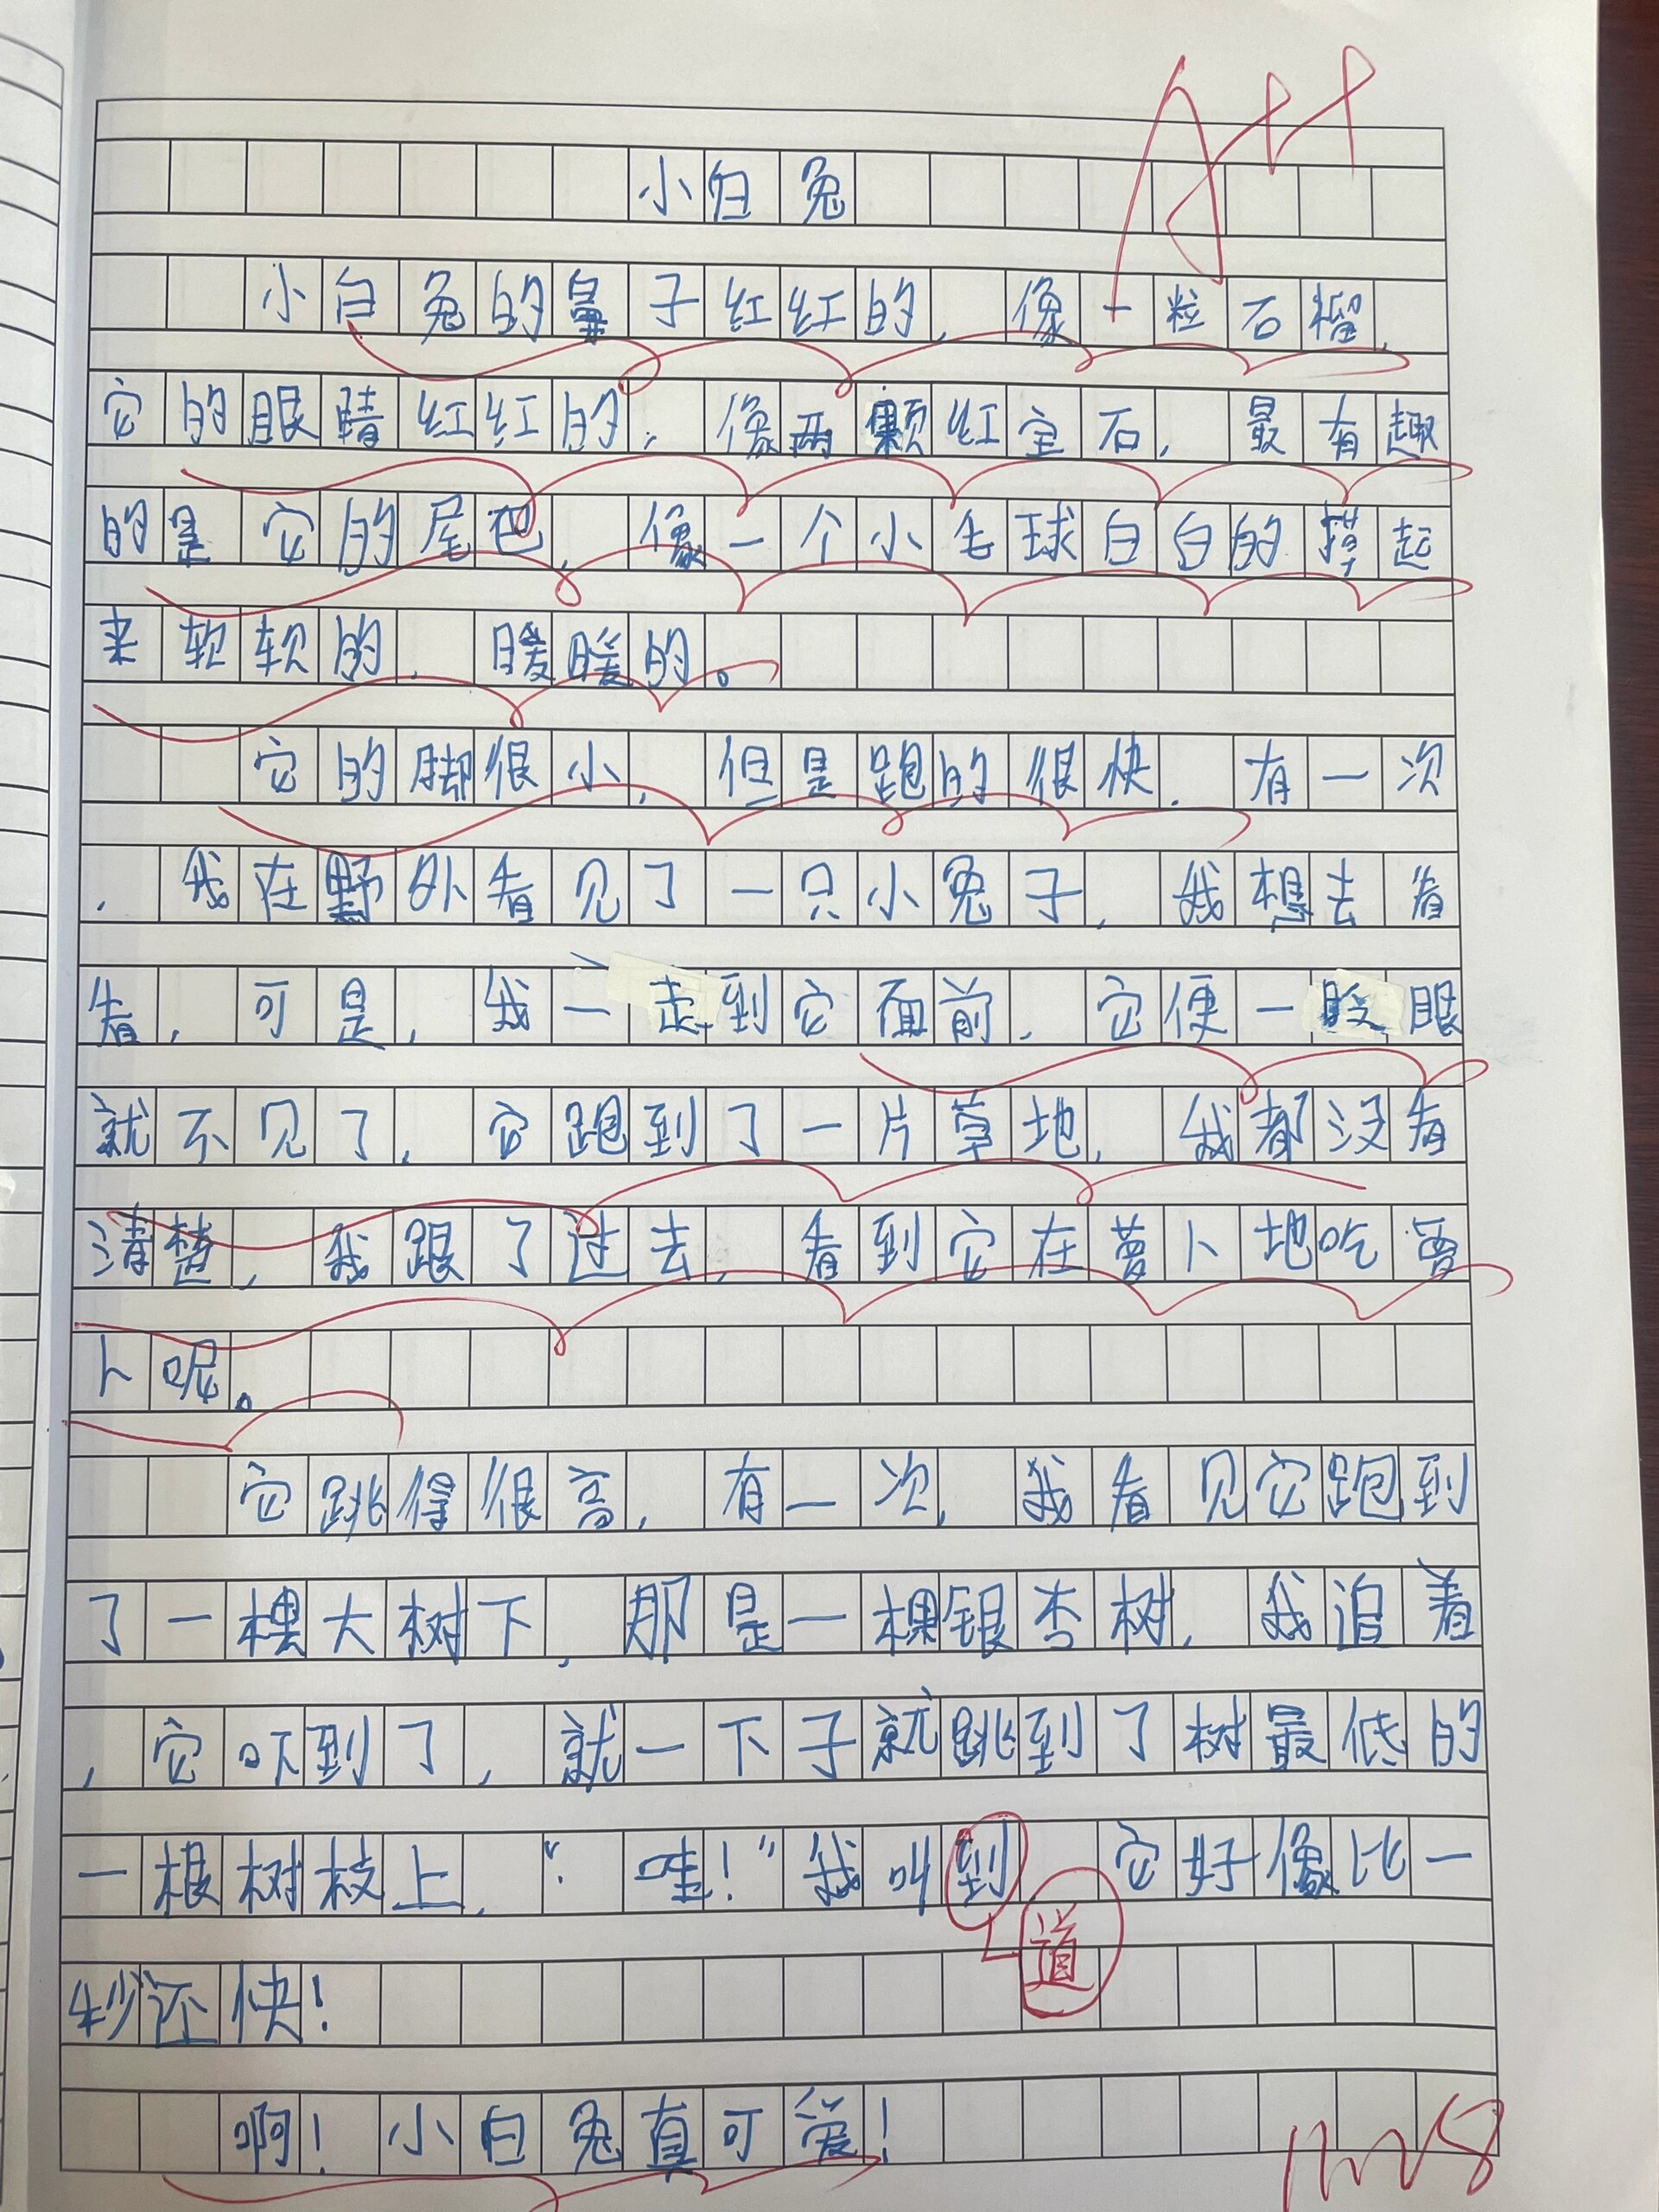 A++
小白兔
小白兔的鼻子红红的，像一粒石榴，
它的眼睛红红的，像两颗红宝石，最有趣
的是它的尾巴，像一个小毛球白白的摸起
来软软的，暖暖的。
它的脚很小，但是跑的很快，有一次
，我在野外看见了一只小兔子，我想去看
看，可是，我一走到它面前，它便一眨眼
就不见了，它跑到了一片草地，我都没看
清楚，我跟了过去，看到它在萝卜地吃萝
卜呢。
它跳得很高，有一次，我看见它跑到
了一棵大树下，那是一棵银杏树，我追着
，它吓到了，就一下子就跳到了树最低的
一根树枝上，“哇！”我叫到 它好像比一
道
秒还快！
啊！小白兔真可爱！